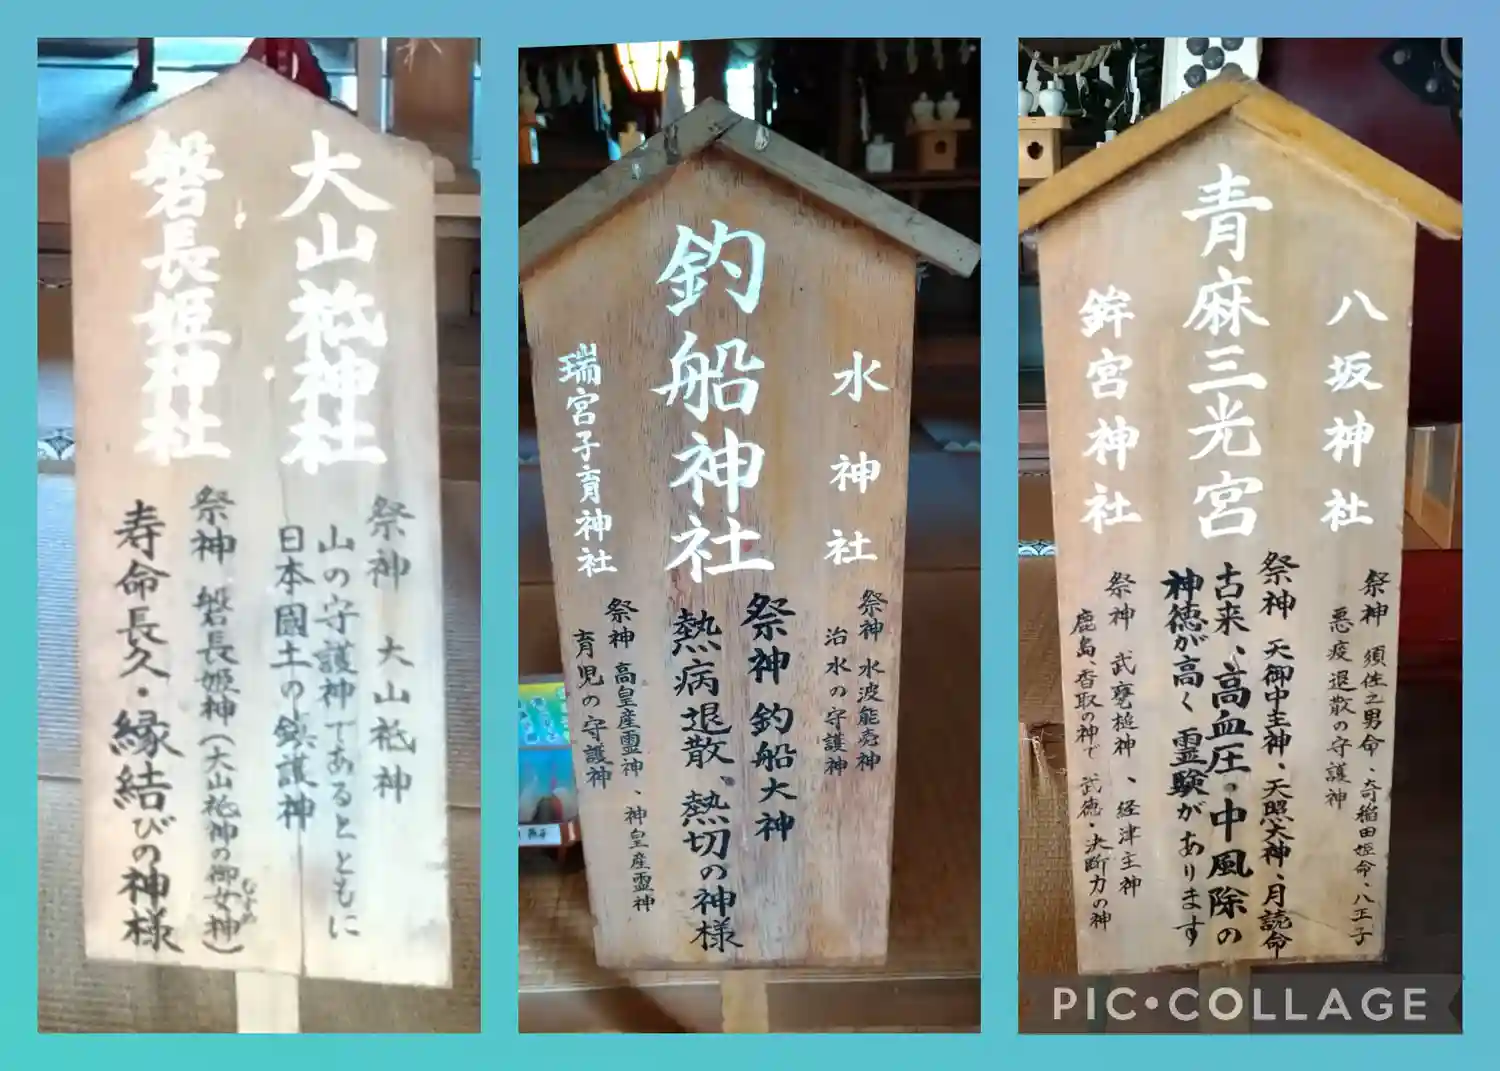 大山祇神社
祭神 大山祇神
山の守護神であるとともに
日本國土の鎮護神
磐長姫神社
祭神 磐長姫神(大山祇神の御女神)
むすめ
寿命長久・縁結びの神様
水神社
祭神 水波能売神
治水の守護神
釣船神社
祭神 釣船大神
熱病退散、熱切の神様
瑞宮子育神社
祭神 高皇産霊神、神皇産霊神
育児の守護神
八坂神社
祭神 須佐之男命、奇稲田姫命、八王子
悪疫退散の守護神
青麻三光宮
祭神 天御中主神、天照大神、月読命
古来、高血圧・中風除の
神徳が高く霊験があります
鉾宮神社
祭神 武甕槌神、経津主神
鹿島、香取の神で 武徳・決断力の神
PIC•COLLAGE